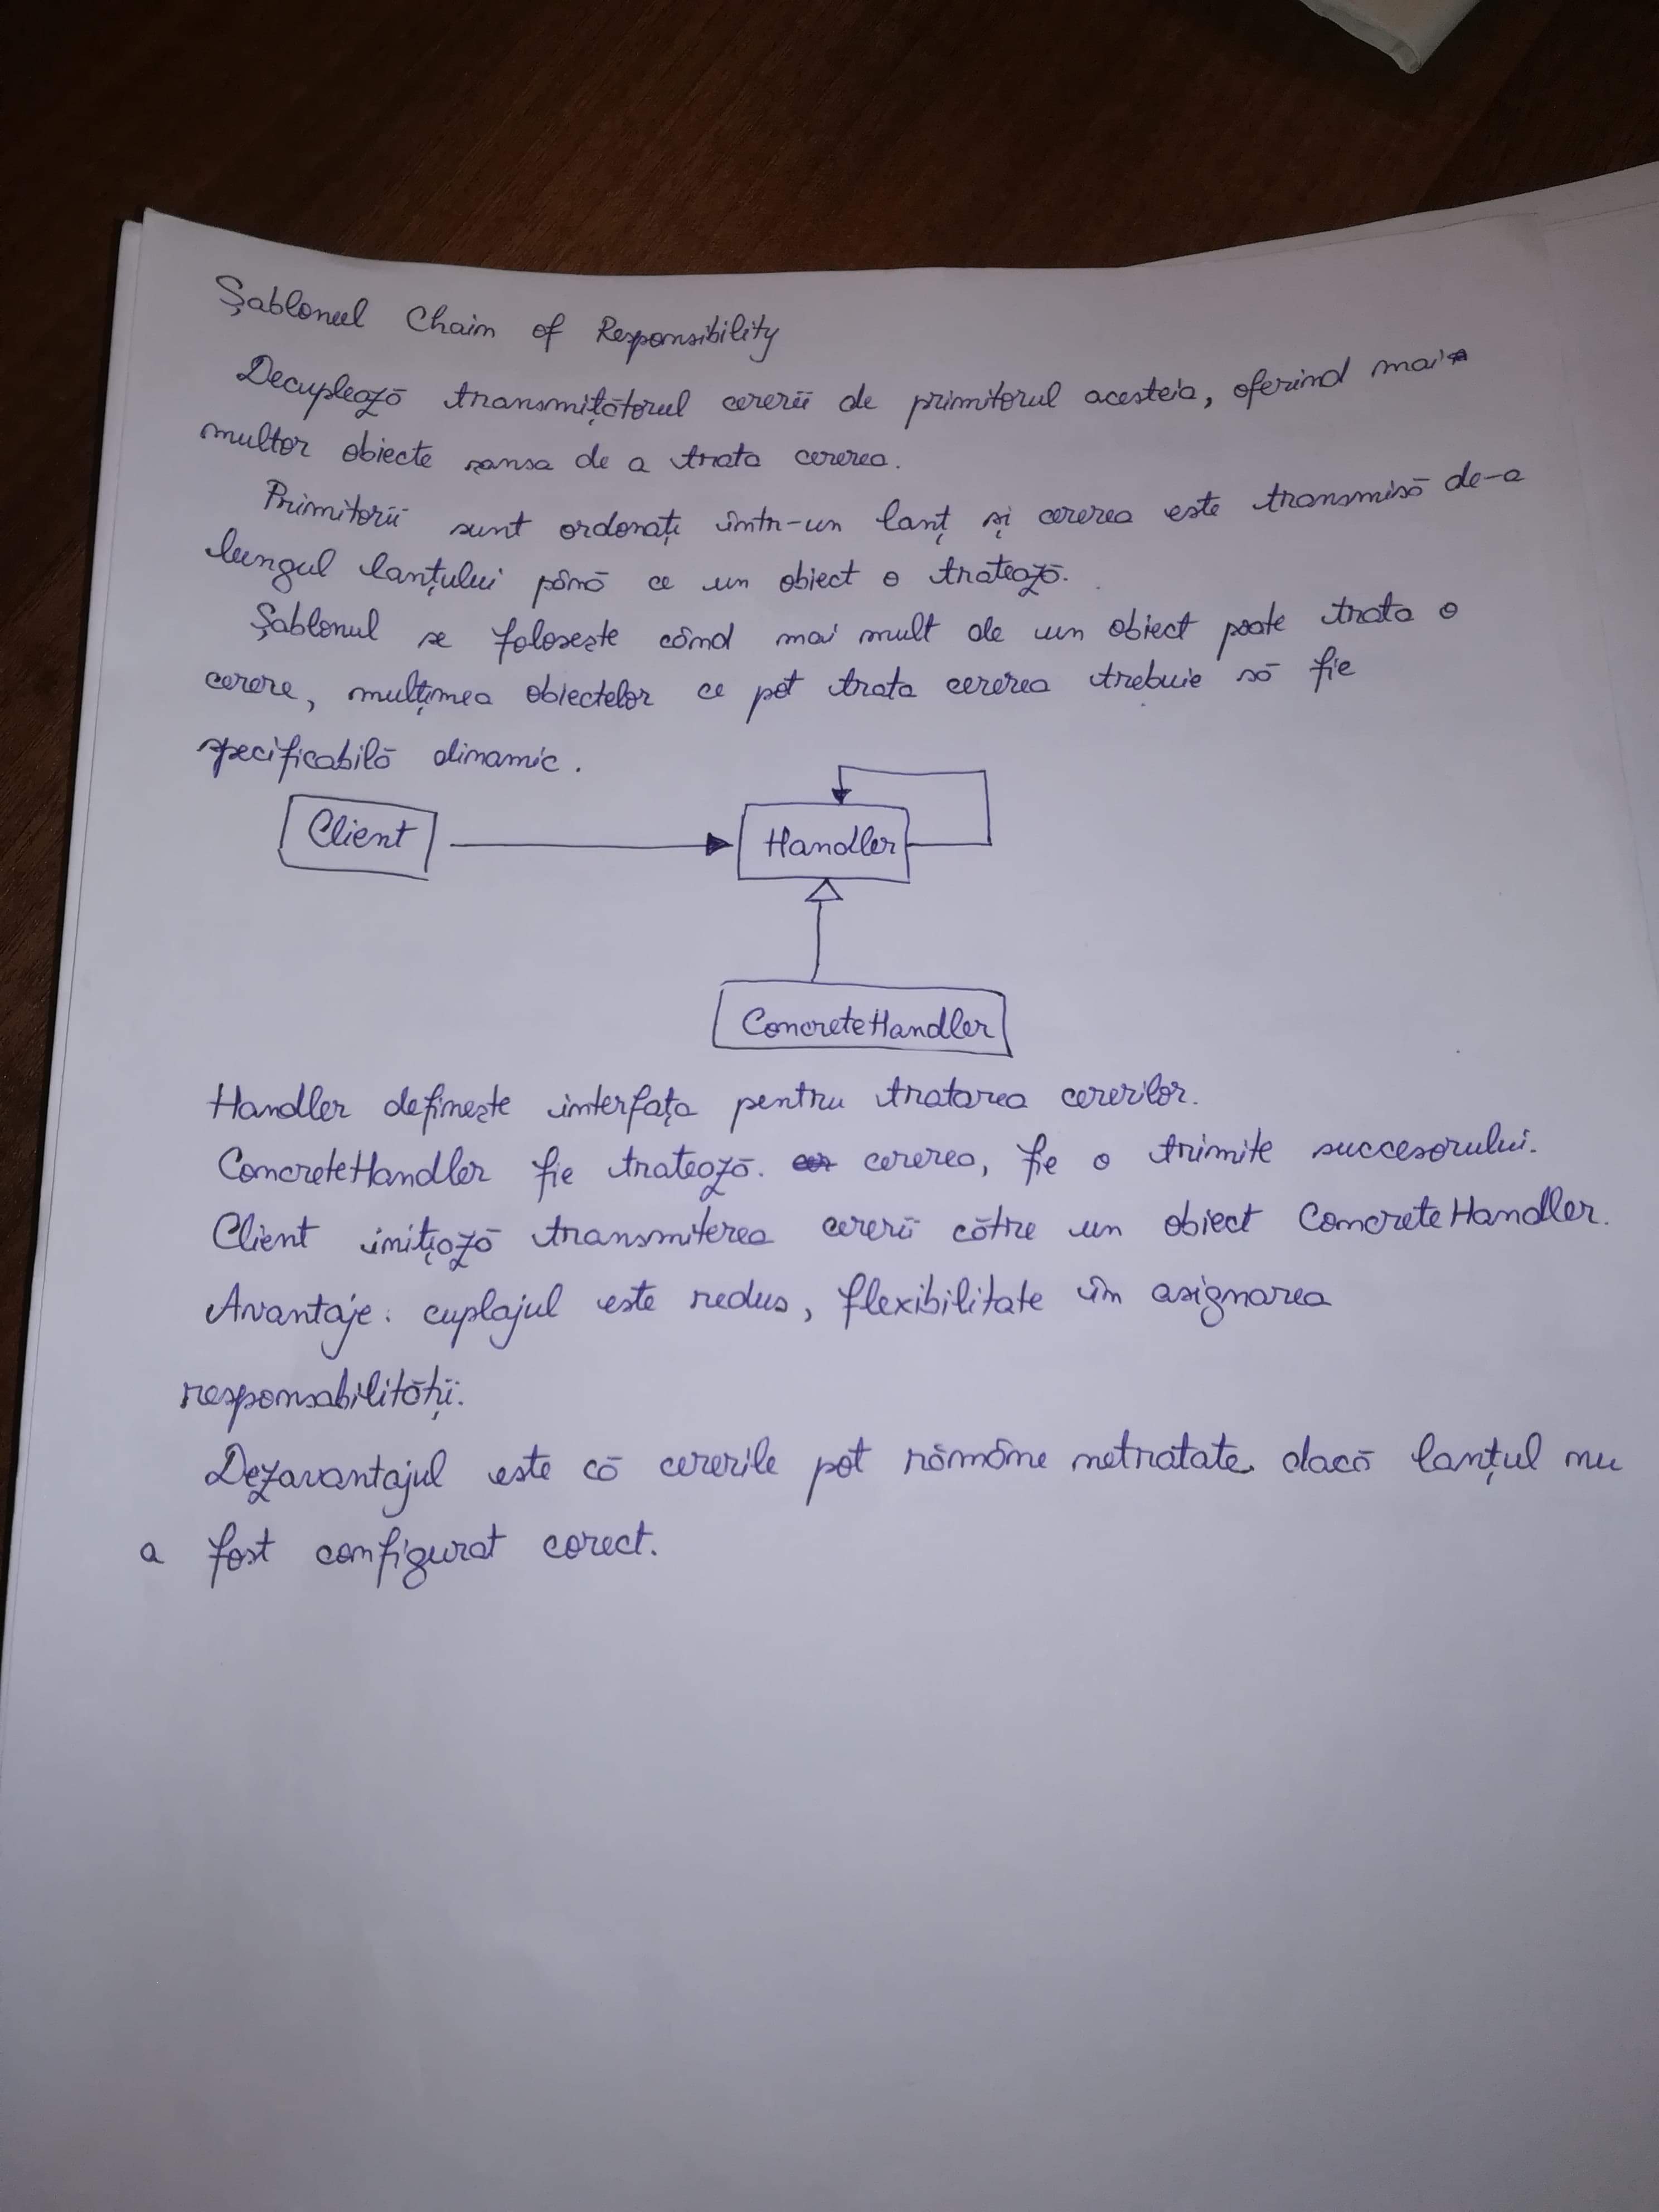 Șablonul Chain of Responsibility
Decuplează transmițătorul cererii de primitorul acesteia, oferind mai
multor obiecte șansa de a trata cererea.
Primitorii sunt ordonați într-un lanț și cererea este transmisă de-a
lungul lanțului până ce un obiect o tratează.
Șablonul se folosește când mai mult de un obiect poate trata o
cerere, mulțimea obiectelor ce pot trata cererea trebuie să fie
specificabilă dinamic.
Client
Handler
ConcreteHandler
Handler definește interfața pentru tratarea cererilor.
ConcreteHandler fie tratează cererea, fie o trimite succesorului.
Client inițiază transmiterea cererii către un obiect ConcreteHandler.
Avantaje: cuplajul este redus, flexibilitate în asignarea
responsabilității.
Dezavantajul este că cererile pot rămâne netratate dacă lanțul nu
a fost configurat corect.